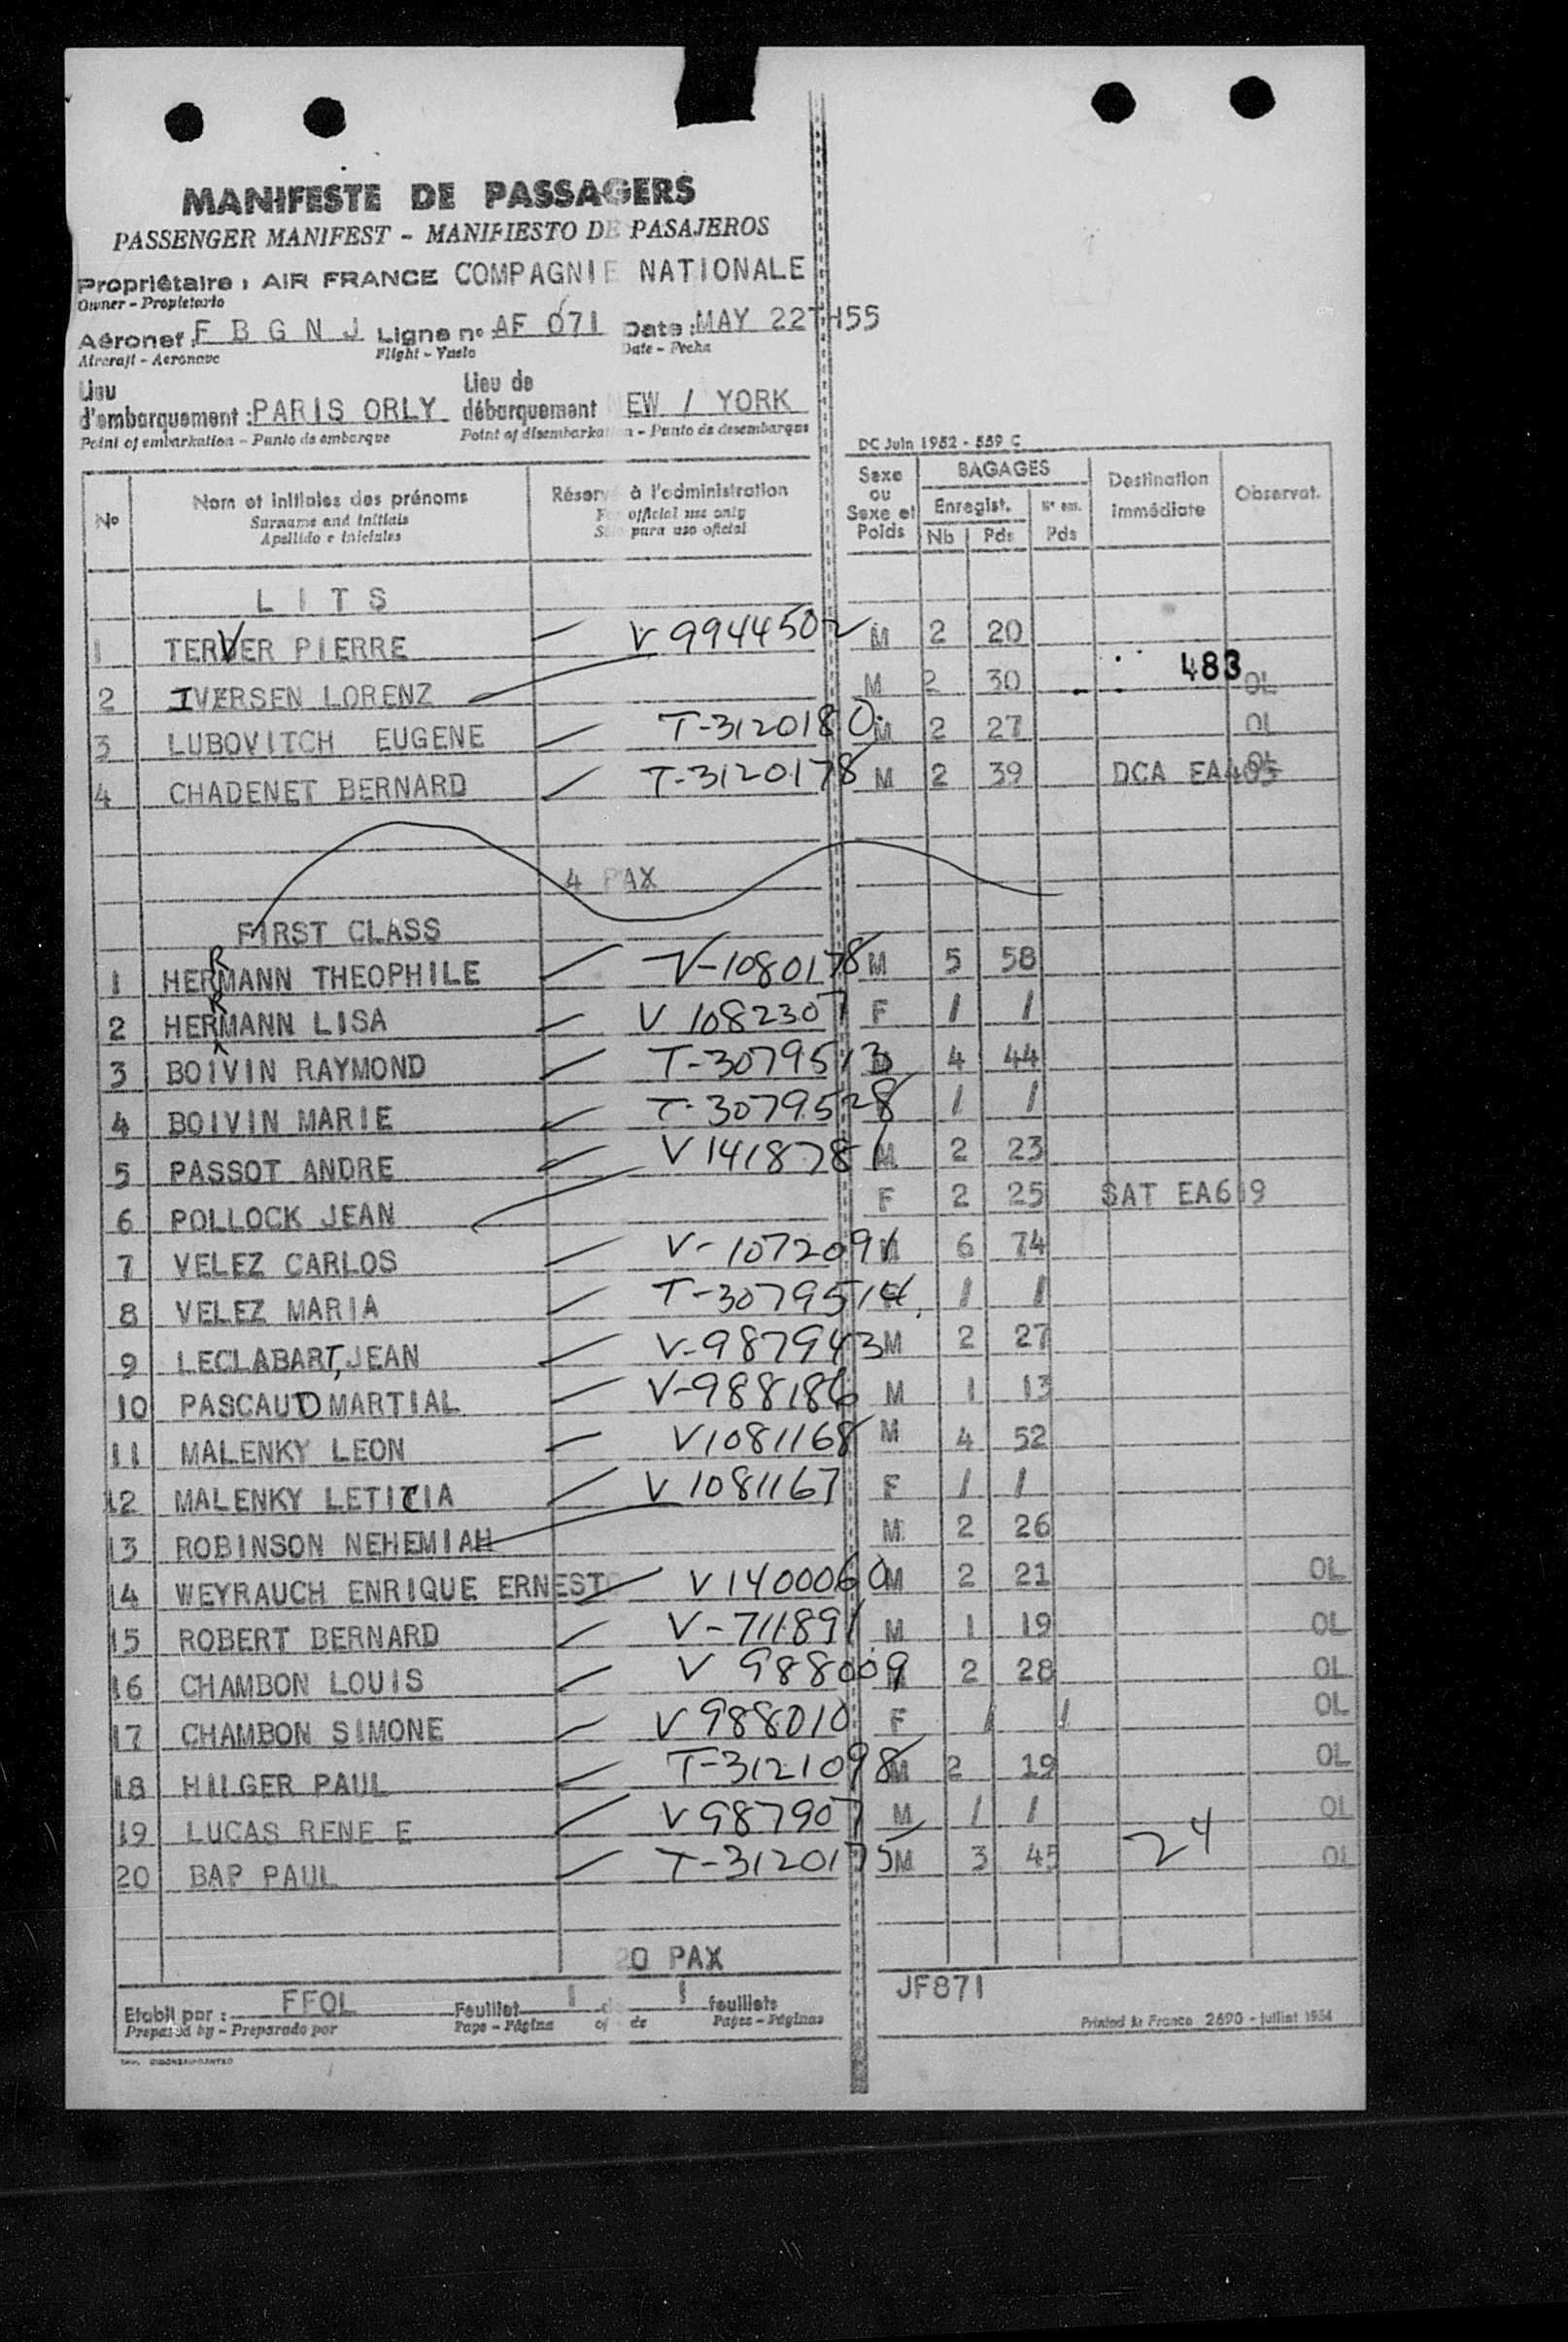 MANIFESTE DE PASSAGERS
PASSENGER MANIFEST - MANIFIESTO DE PASAJEROS
Propriétaire : AIR FRANCE COMPAGNIE NATIONALE
Owner - Propietario
Aéronef : F B G N J Ligne n° : AF 071 Date : MAY 22TH55
Aircraft - Aeronave Flight - Vuelo Date - Fecha
Lieu d'embarquement : PARIS ORLY Lieu de débarquement NEW / YORK
Point of embarkation - Punto de embarque Point of disembarkation - Punto de desembarque
DC Juin 1952 - 559 C
No Nom et initiales des prénoms Réservé à l'administration Sexe ou Sexe et Poids BAGAGES Destination immédiate Observat.
Surname and initials For official use only Enregist. N° en.
Apellido e iniciales Sólo para uso oficial Nb Pds Pds
LITS
1 TERVER PIERRE V 9944502 M 2 20
483
2 IVERSEN LORENZ M 2 30 OL
3 LUBOVITCH EUGENE T-3120180 M 2 27 OL
4 CHADENET BERNARD T-3120178 M 2 39 DCA EA405 OL
4 PAX
FIRST CLASS
1 HERRMANN THEOPHILE V-1080178 M 5 58
2 HERRMANN LISA V 1082307 F / /
3 BOIVIN RAYMOND T-3079513 4 44
4 BOIVIN MARIE T-3079528 / /
5 PASSOT ANDRE V 1418781 M 2 23
6 POLLOCK JEAN F 2 25 SAT EA619
7 VELEZ CARLOS V-1072091 M 6 74
8 VELEZ MARIA T-3079514 / /
9 LECLABART, JEAN V-987943 M 2 27
10 PASCAUD MARTIAL V-988186 M 1 13
11 MALENKY LEON V1081168 M 4 52
12 MALENKY LETICIA V 1081167 F / /
13 ROBINSON NEHEMIAH M 2 26
14 WEYRAUCH ENRIQUE ERNESTO V 1400060 M 2 21 OL
15 ROBERT BERNARD V-711891 M 1 19 OL
16 CHAMBON LOUIS V 988009 M 2 28 OL
17 CHAMBON SIMONE V 988010 F / / OL
18 HILGER PAUL T-3121098 M 2 19 OL
19 LUCAS RENE E V 987907 M / / OL
24
20 BAP PAUL T-3120175 M 3 45 OL
20 PAX
Etabli par : FFOL Feuillet 1 de 1 feuillets JF871
Prepared by - Preparado por Page - Página of - de Pages - Páginas Printed in France 2690 - juillet 1954